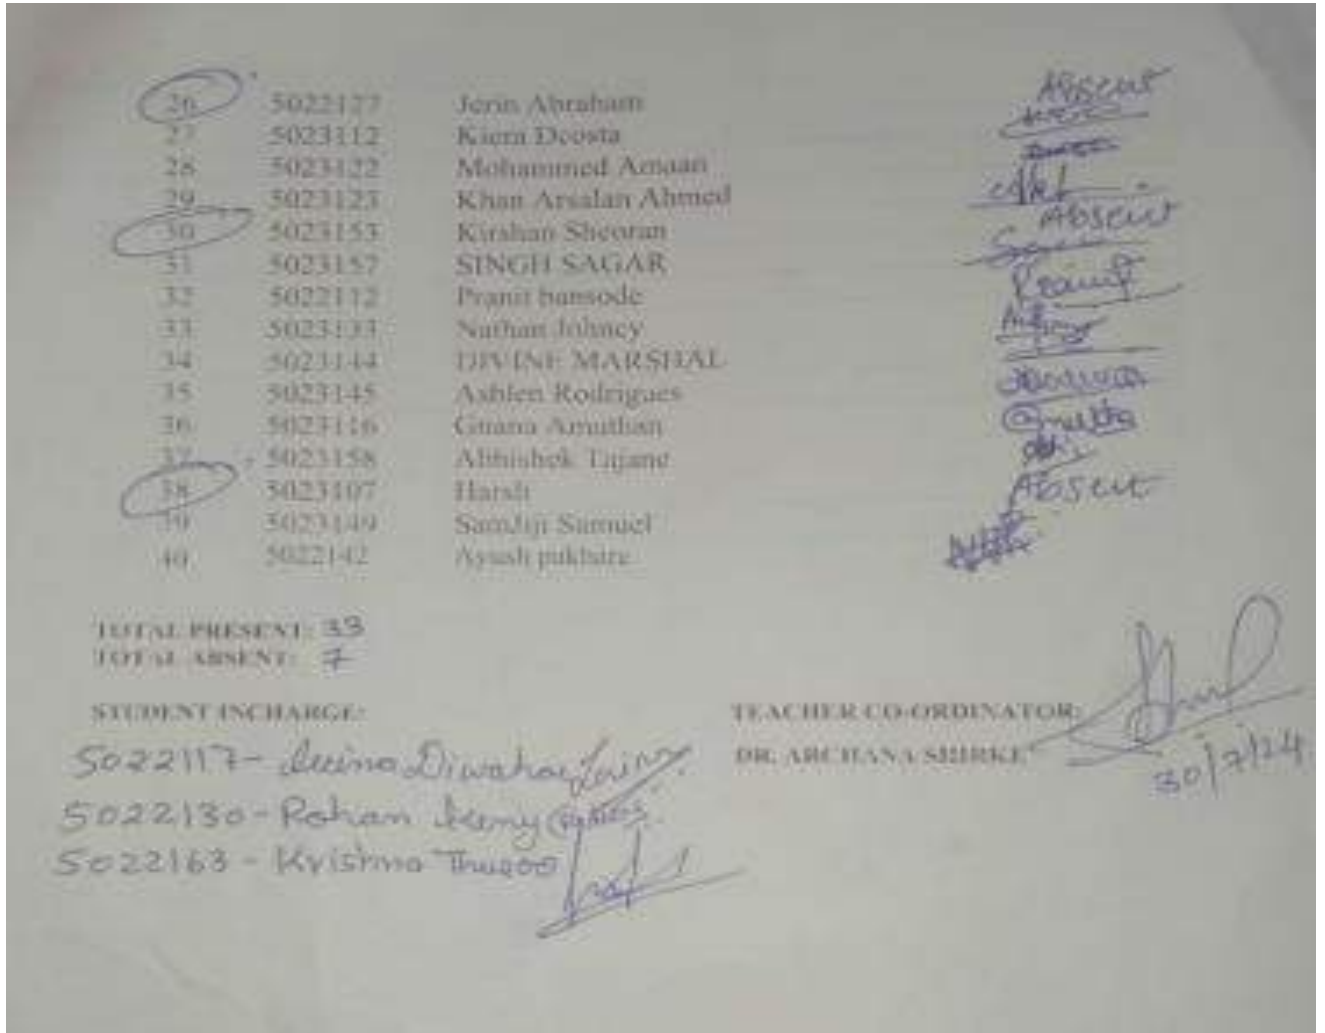 26 5022127 Jerin Abraham Absent
27 5023112 Kiera Dcosta
28 5023122 Mohammed Amaan
29 5023123 Khan Arsalan Ahmed
30 5023153 Kirshan Sheoran Absent
31 5023157 SINGH SAGAR
32 5022112 Pranit bansode
33 5023133 Nathan Johncy
34 5023144 DIVINE MARSHAL
35 5023145 Ashlen Rodrigues
36 5023116 Gnana Amuthan
37 5023158 Abhishek Tajane
38 5023107 Harsh Absent
39 5023149 SamJiji Samuel
40 5022142 Ayush pakhare
TOTAL PRESENT: 33
TOTAL ABSENT: 7
STUDENT INCHARGE: TEACHER CO-ORDINATOR:
DR. ARCHANA SHIRKE
30/7/24
5022117- Diwakar
5022130- Rohan
5022163 - Krishna